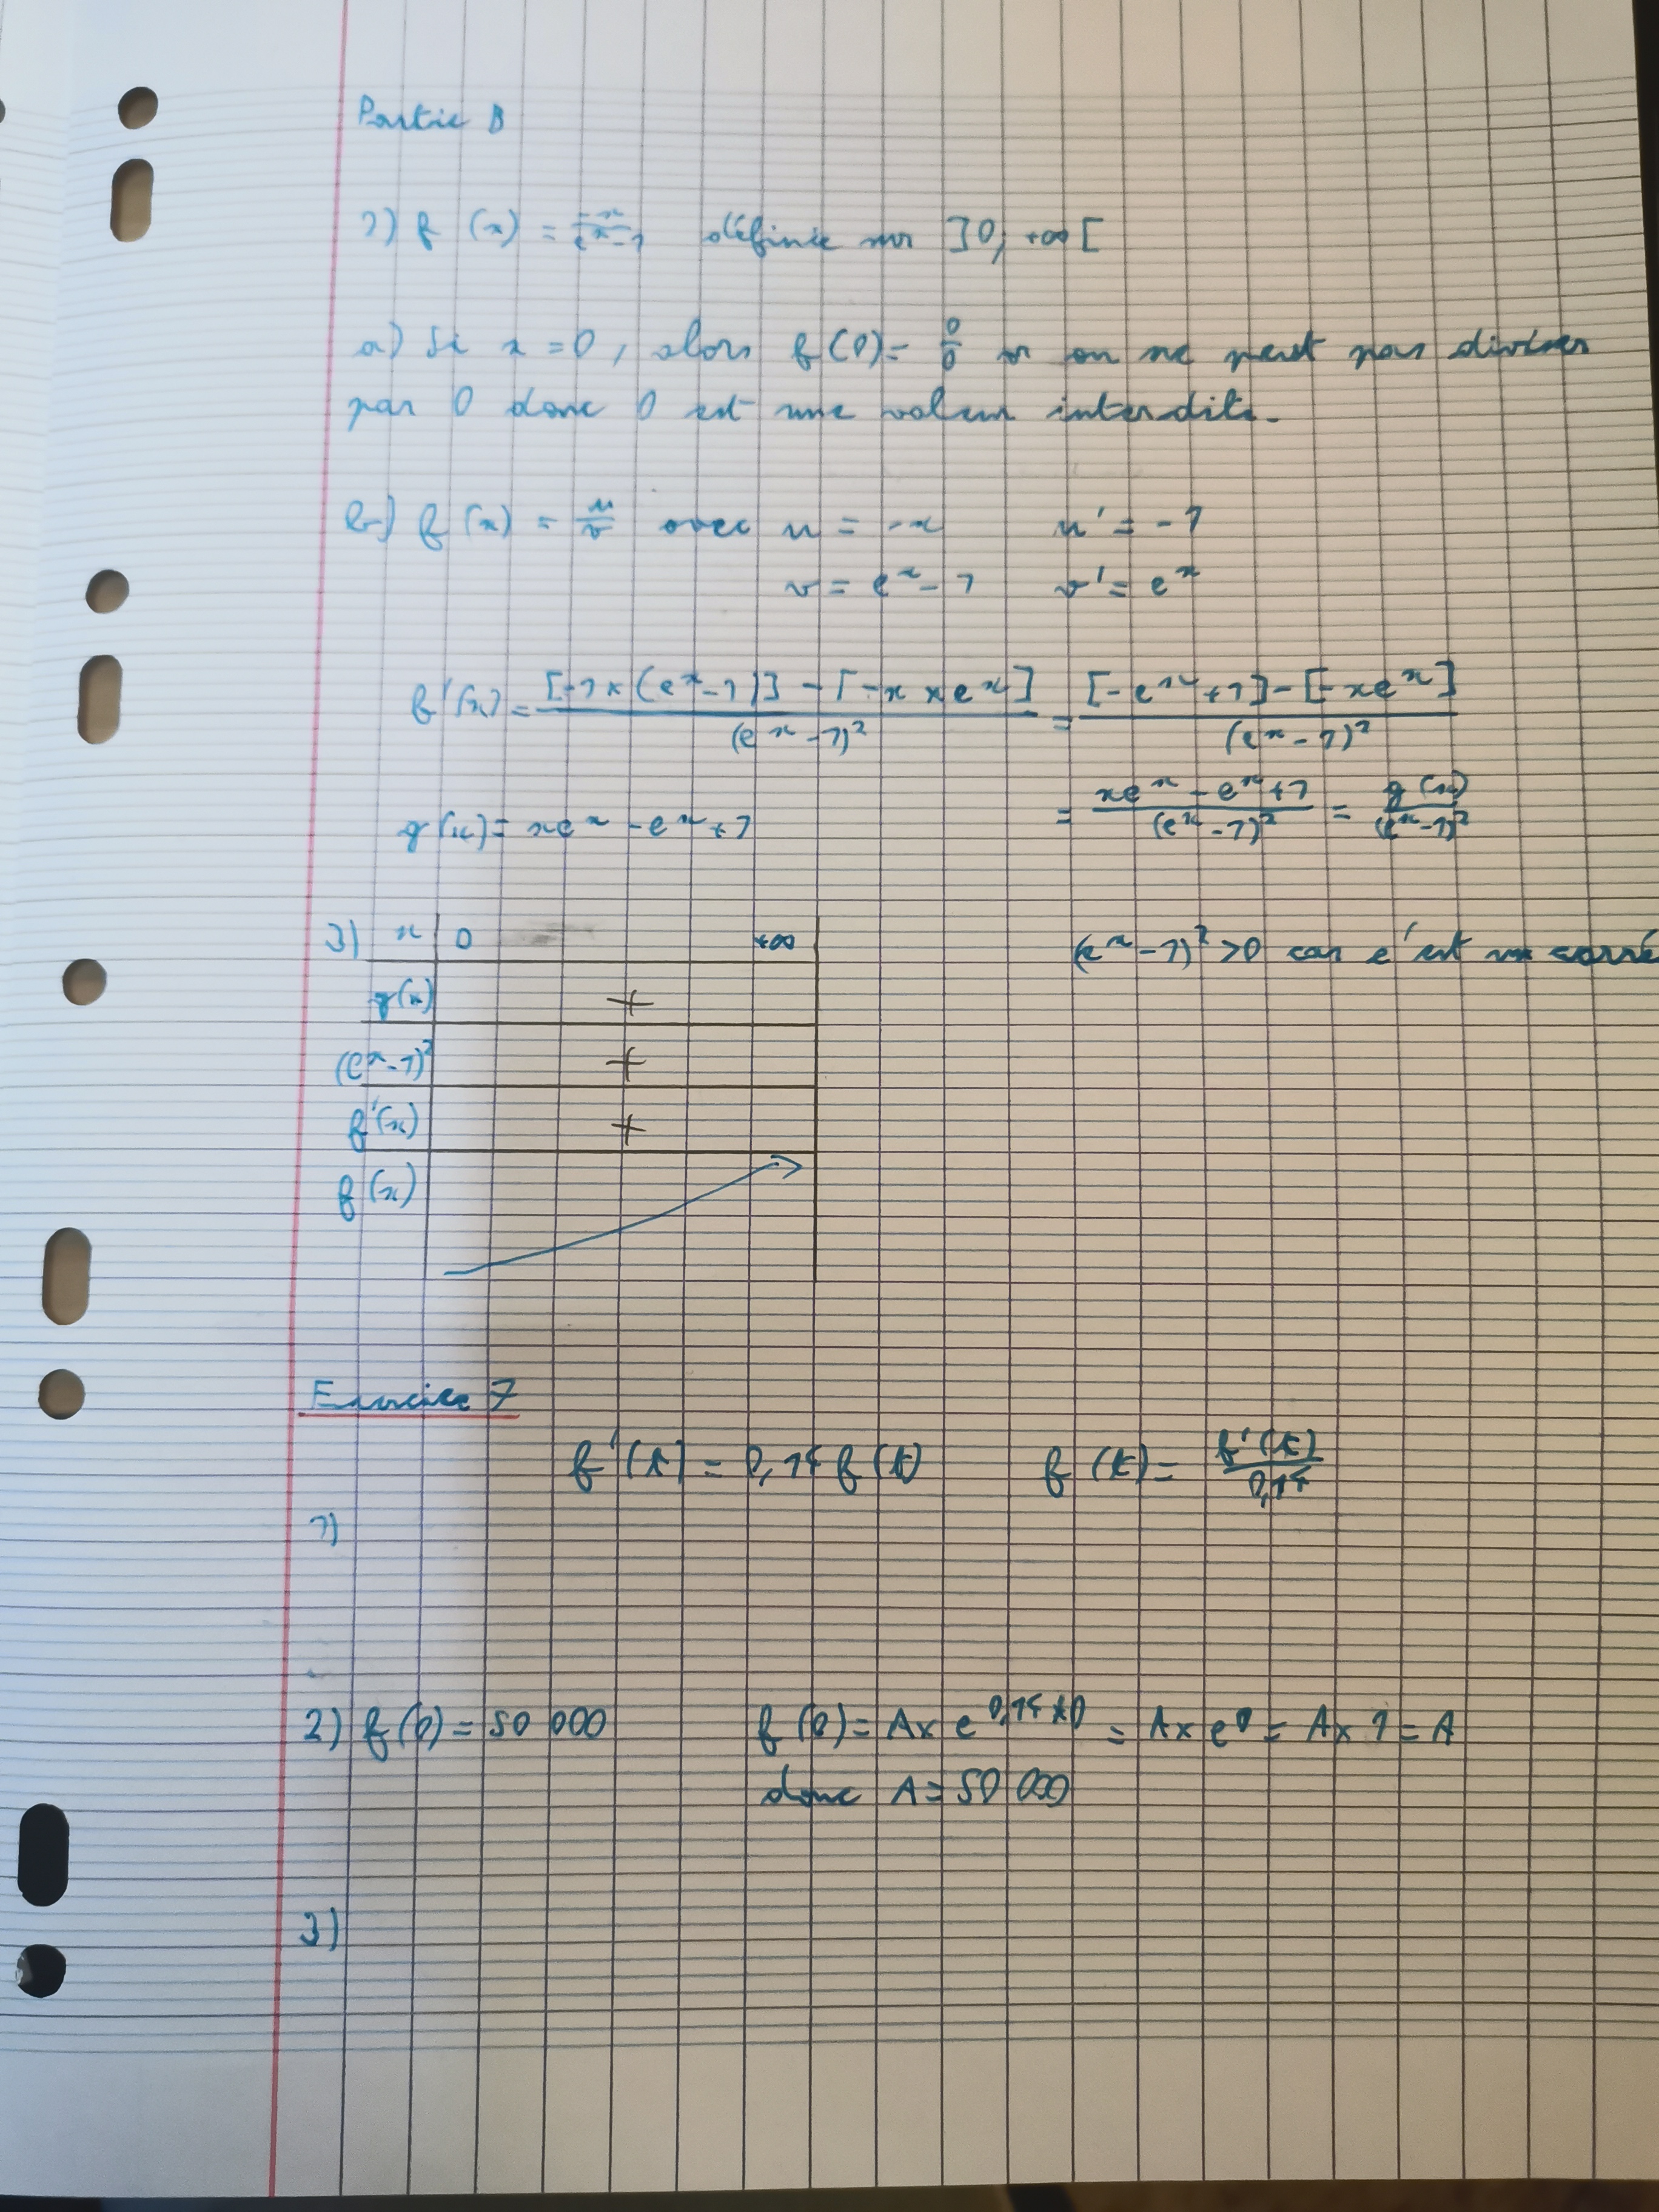 Partie B
1) f(x) = -x/(e^x - 1) définie sur ]0, +∞[
a) Si x = 0, alors f(0) = 0/0 or on ne peut pas diviser
par 0 donc 0 est une valeur interdite.
b) f(x) = u/v avec u = -x u' = -1
v = e^x - 1 v' = e^x
f'(x) = ([-1 × (e^x - 1)] - [-x × e^x])/(e^x - 1)² = ([-e^x + 1] - [-xe^x])/(e^x - 1)²
= (xe^x - e^x + 1)/(e^x - 1)² = g(x)/(e^x - 1)²
g(x) = xe^x - e^x + 1
3) x 0 +∞ (e^x - 1)² > 0 car c'est un carré
g(x) +
(e^x - 1)² +
f'(x) +
f(x)
Exercice 7
f'(t) = 0,15 f(t) f(t) = f'(t)/0,15
1)
2) f(0) = 50 000 f(0) = A × e^(0,15×0) = A × e^0 = A × 1 = A
donc A = 50 000
3)